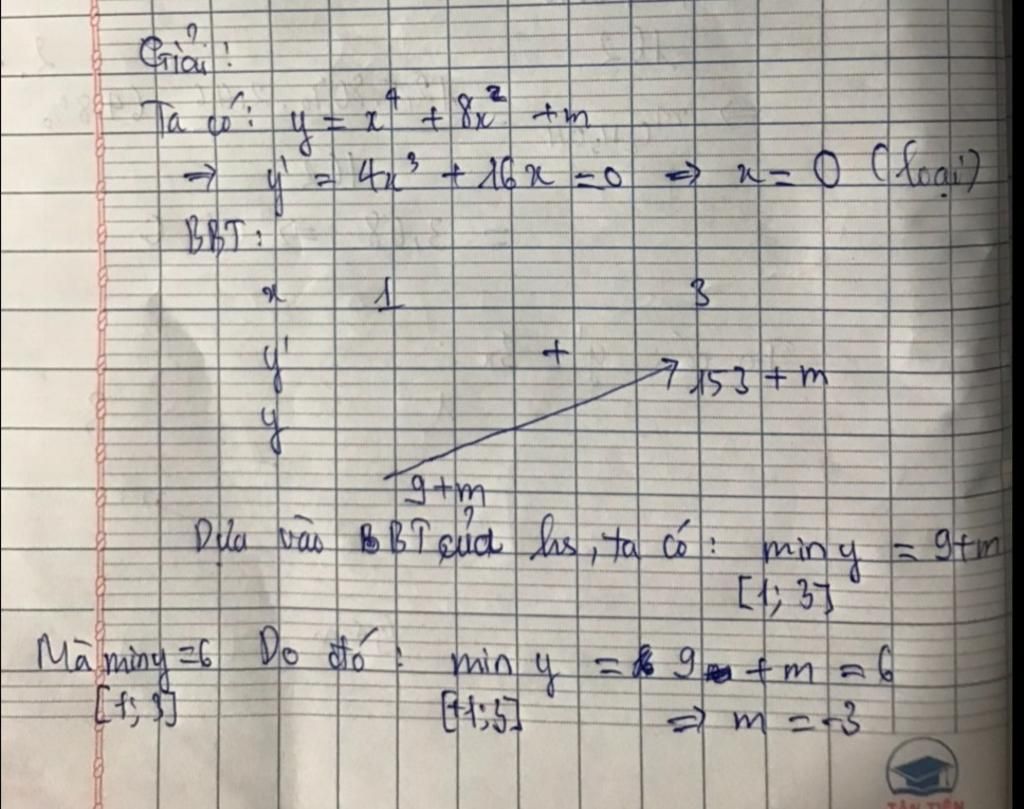 Giải:
Ta có: y = x⁴ + 8x² + m
⇒ y' = 4x³ + 16x = 0 ⇒ x = 0 (loại)
BBT:
x 1 3
y' +
153 + m
y
9+m
Dựa vào BBT của hs, ta có: min y = 9+m
[1; 3]
Mà min y = 6 Do đó: min y = 9 + m = 6
[1; 3] [1; 3] ⇒ m = -3